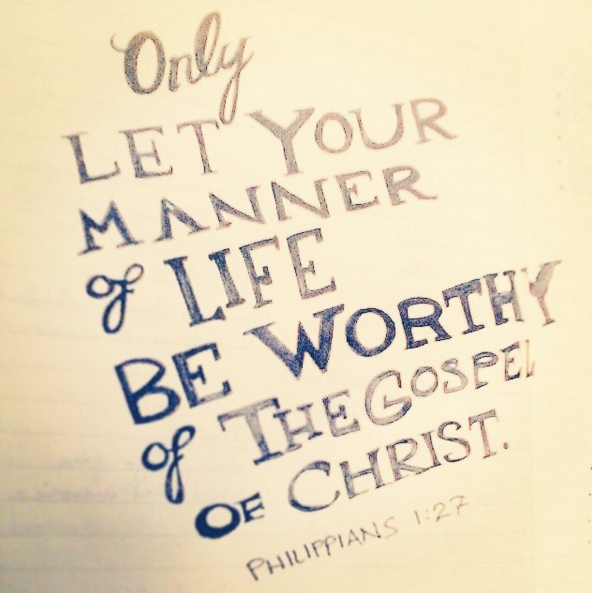 Only
LET YOUR
MANNER
of LIFE
BE WORTHY
of THE GOSPEL
OF CHRIST.
PHILIPPIANS 1:27